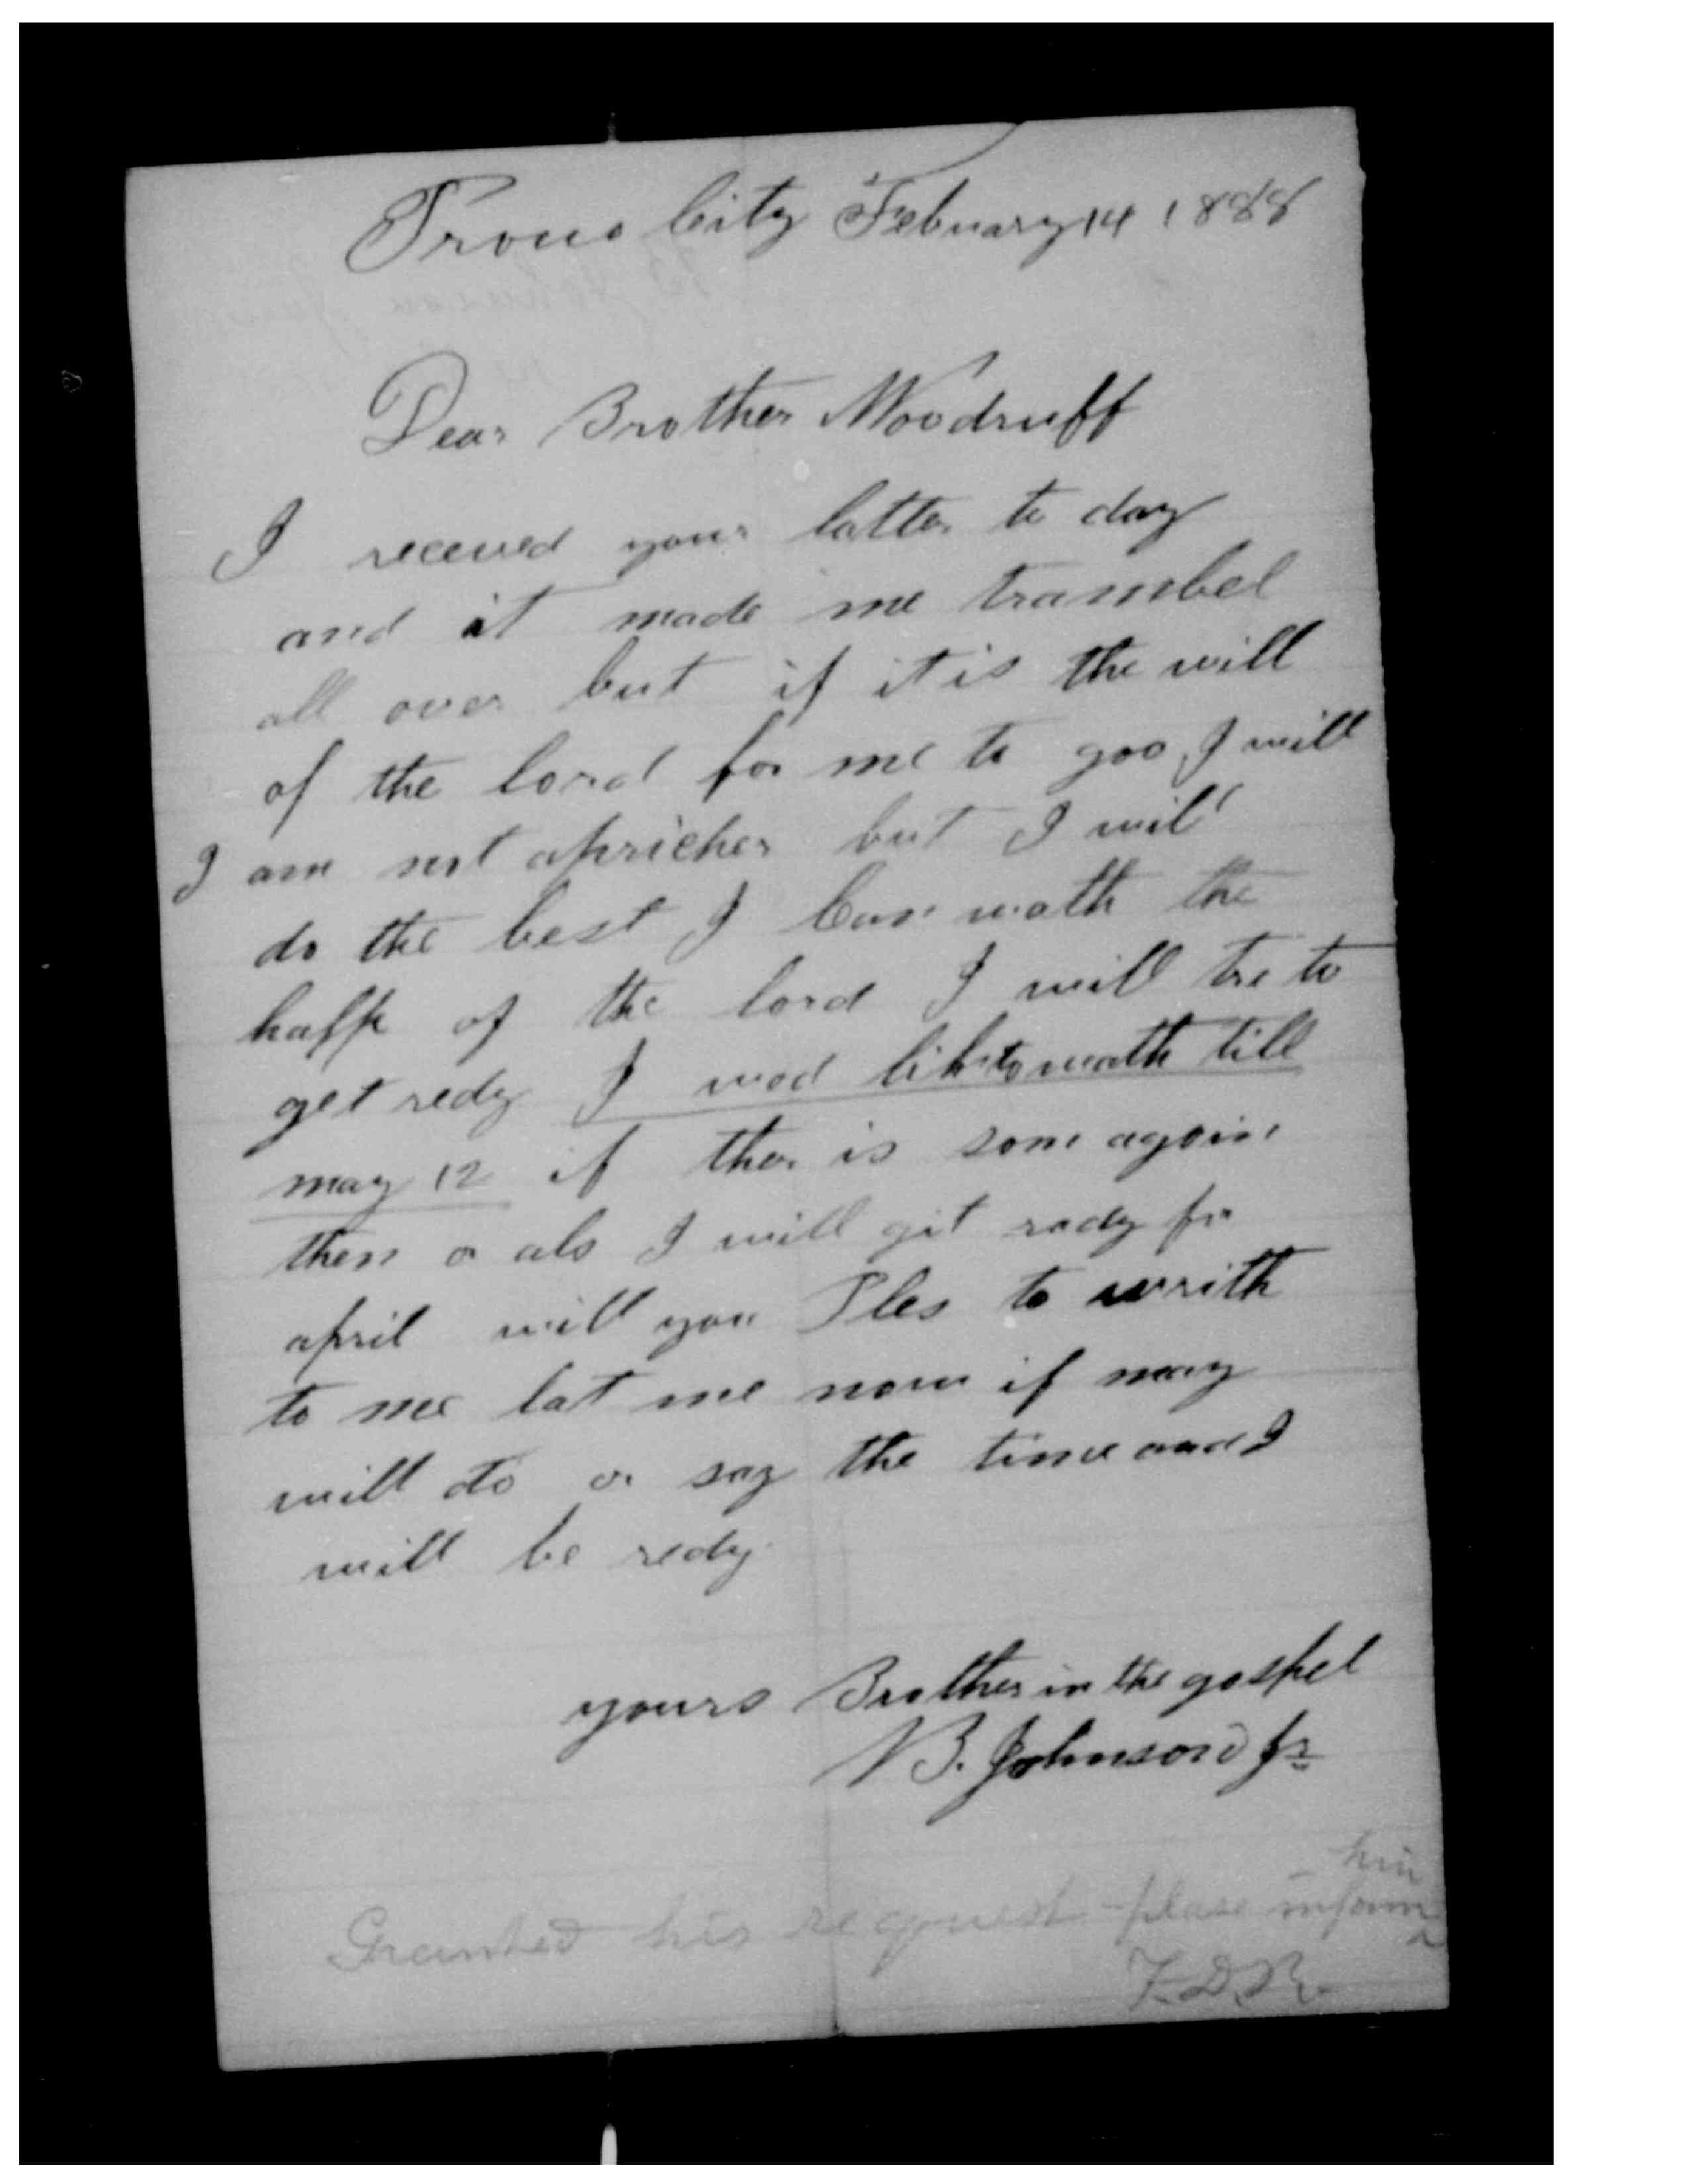 Provo City Febuary 14 1888
Dear Brother Woodruff
I receved your latter to day
and it made me trambel
all over but if it is the will
of the lord for me to goo I will
I am not apricher but I will
do the best I Can wath the
halp of the lord I will tre to
get redy I wod lik to wath till
may 12 if ther is som agoin
then or als I will git rady for
april will you Ples to writh
to me lat me now if may
will do or say the time and I
will be redy
yours Brother in the gospel
B. Johnson Jr
him
Granted his request - please inform
F.D.R.